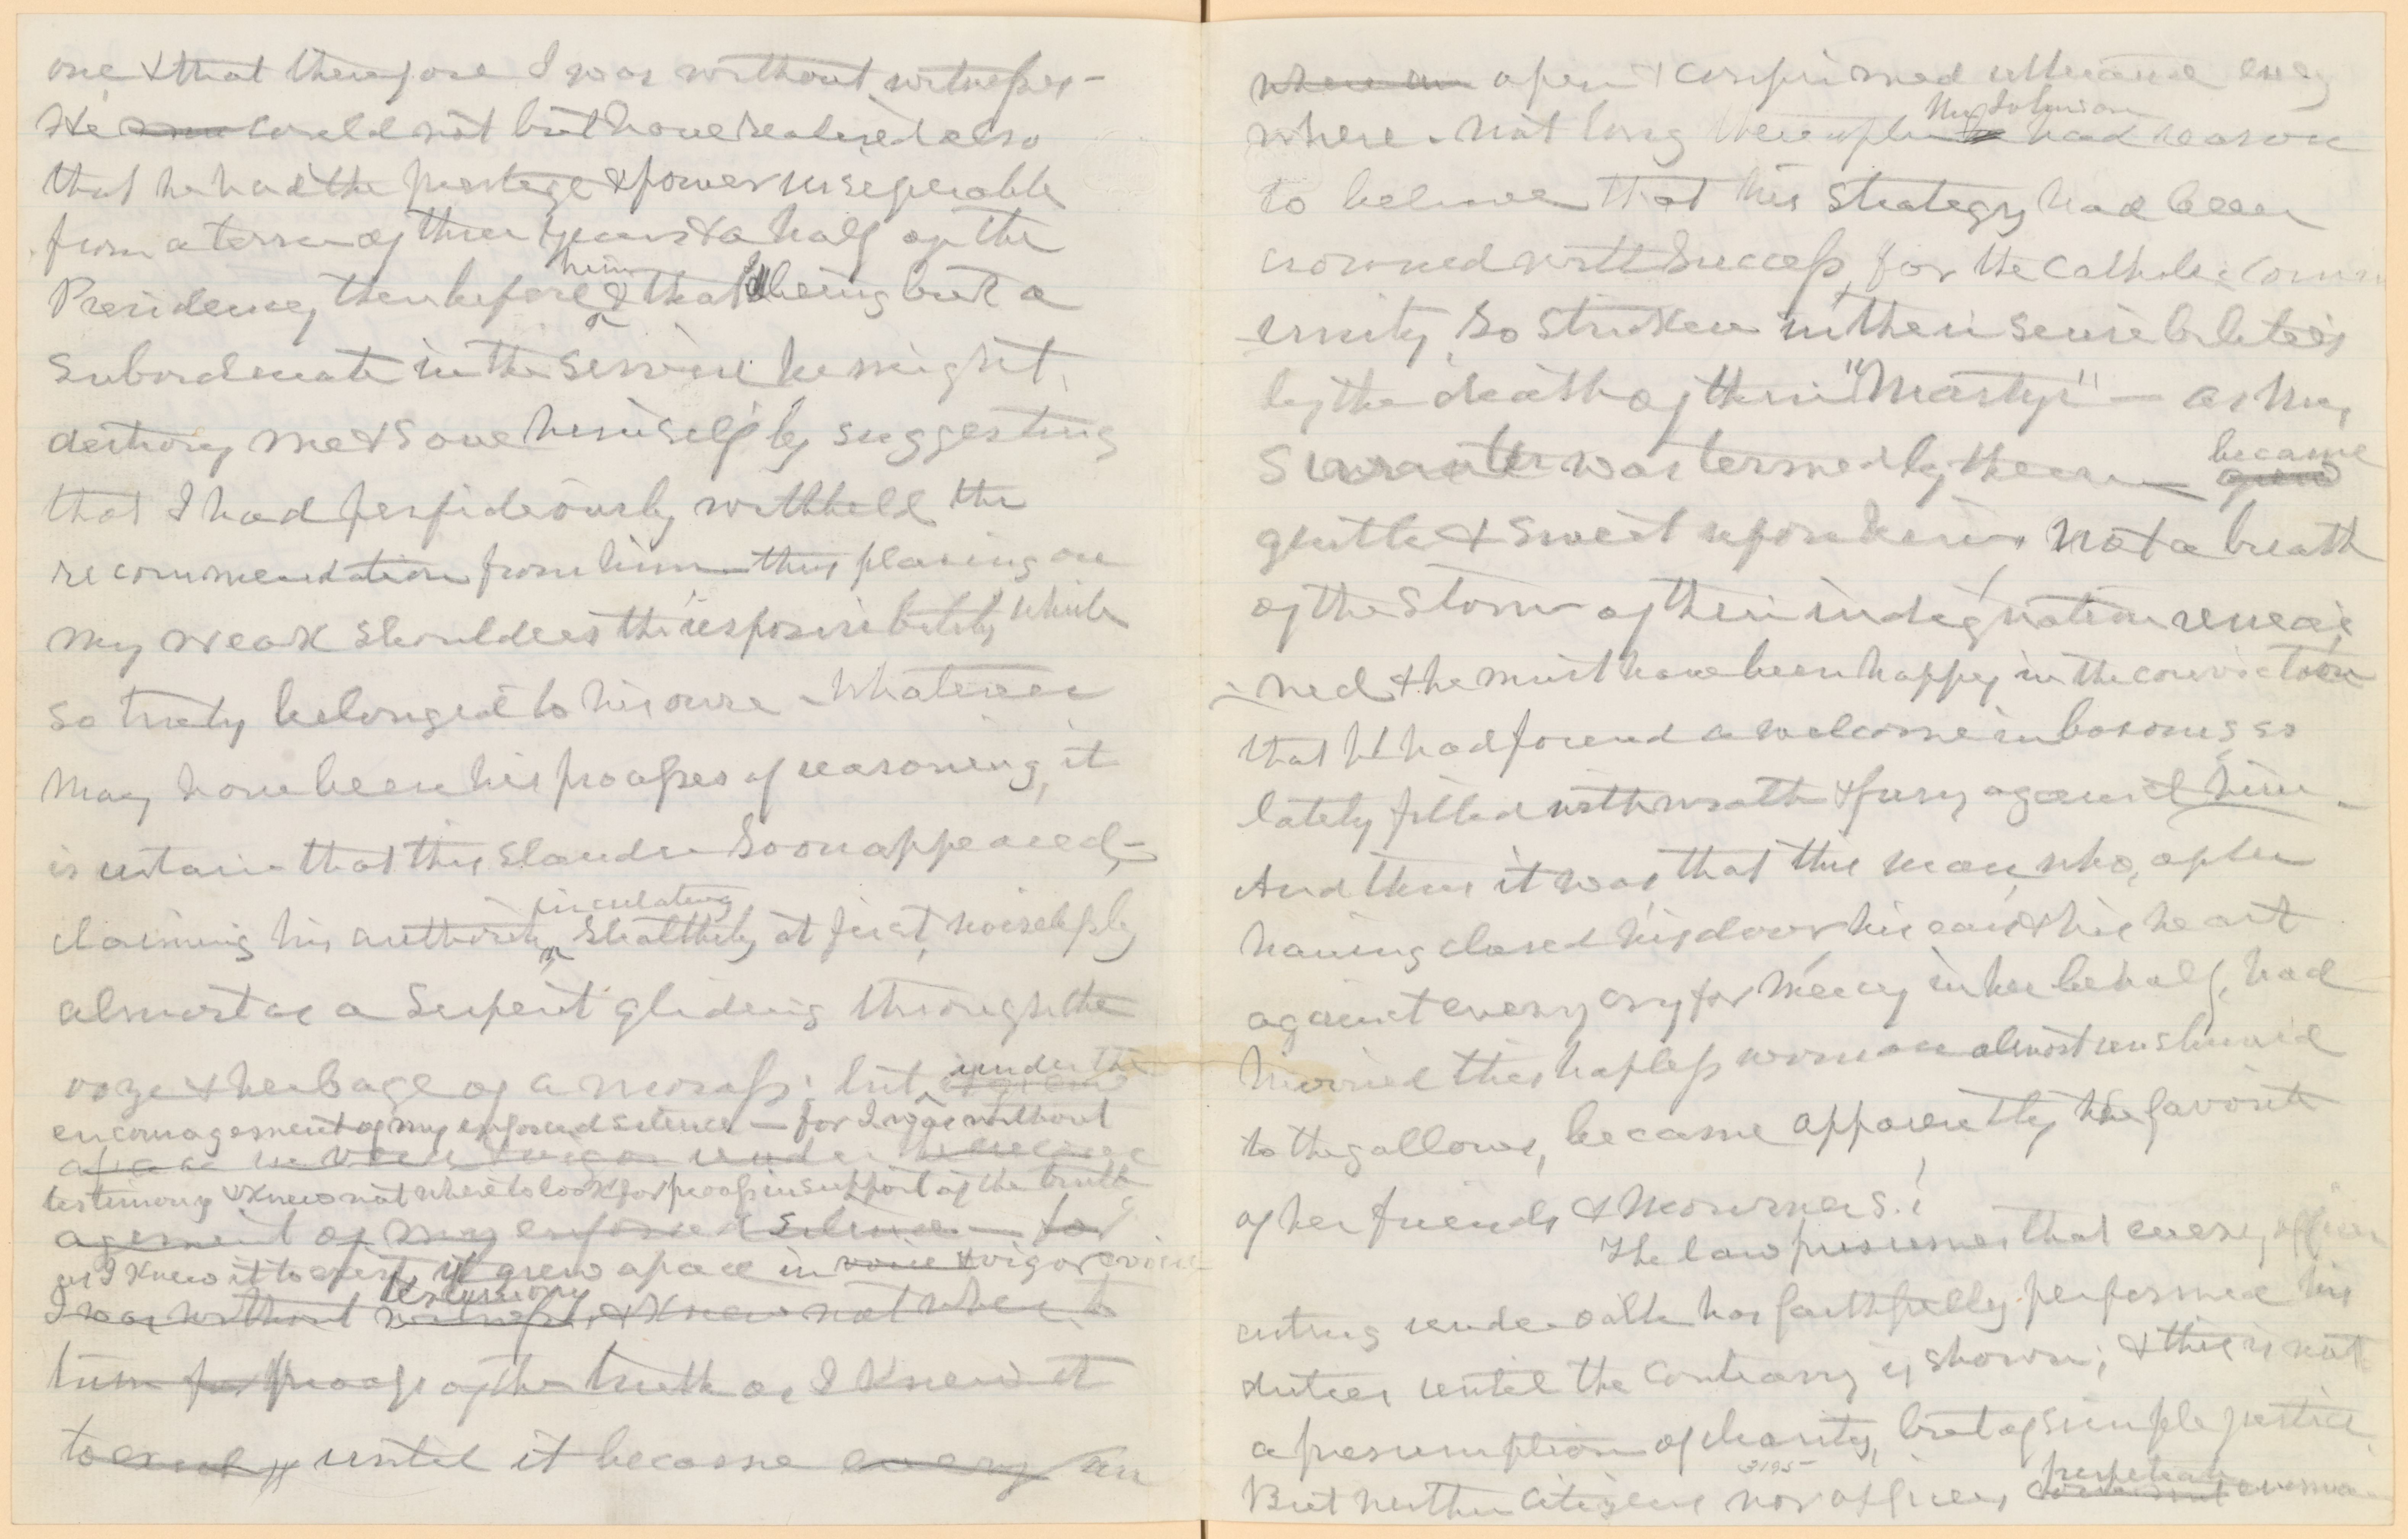 one, & that therefore I was without witnesses –
He could not but have realized also
that he had the prestege & power inseperable
from a term of three years & a half of the
Presidency, then before him & that I being but a
subordinate in the service he might
destroy me & save himself by suggesting
that I had perfideously withheld the
recommendation from him – thus placing on
my weak shoulders the responsibility which
so truly belonged to his own – Whatever
may have been his process of reasoning, it
is certain that this slander soon appeared, –
claiming his authority, circulating stealthily at first, noiselessly
almost as a Serpent gliding through the
ooze & herbage of a morass; but under the
encouragement of my enforced silence – for I was without
apace in voice & vigor under the
testimony & knew not where to look for proofs in support of the truth
agement of my enforced silence – for
as I knew it to exist, it grew apace in voice & vigor
I was without witnesses testimony & knew not where to
turn for proofs of the truth as I knew it
to exist, until it became every an
where an open & confirmed utterance every
where. Not long thereafter Mr Johnson had reason
to believe that his strategy had been
crowned with success, for the Catholic Comm
-unity, so stricken in their sensibilities
by the death of their "Martyr" – as Mrs
Surratt was termed by them – became grew
gentle & sweet upon him, not a breath
of the storm of their indignation remai
-ned & he must have been happy in the conviction
that he had found a welcome in bosoms so
lately filled with wrath & fury against him –
And thus it was, that this man, who, after
having closed his door his ears & his heart
against every cry for mercy in her behalf, had
hurried this hapless woman almost unshrived
to the gallows, became apparently the favorite
of her friends & mourners!
The law presumes that every officer
acting under oath has faithfully performed his
duties until the contrary is shown; & this is not
a presumption of charity, but of simple justice.
3195
But neither citizens nor officers perpetrate